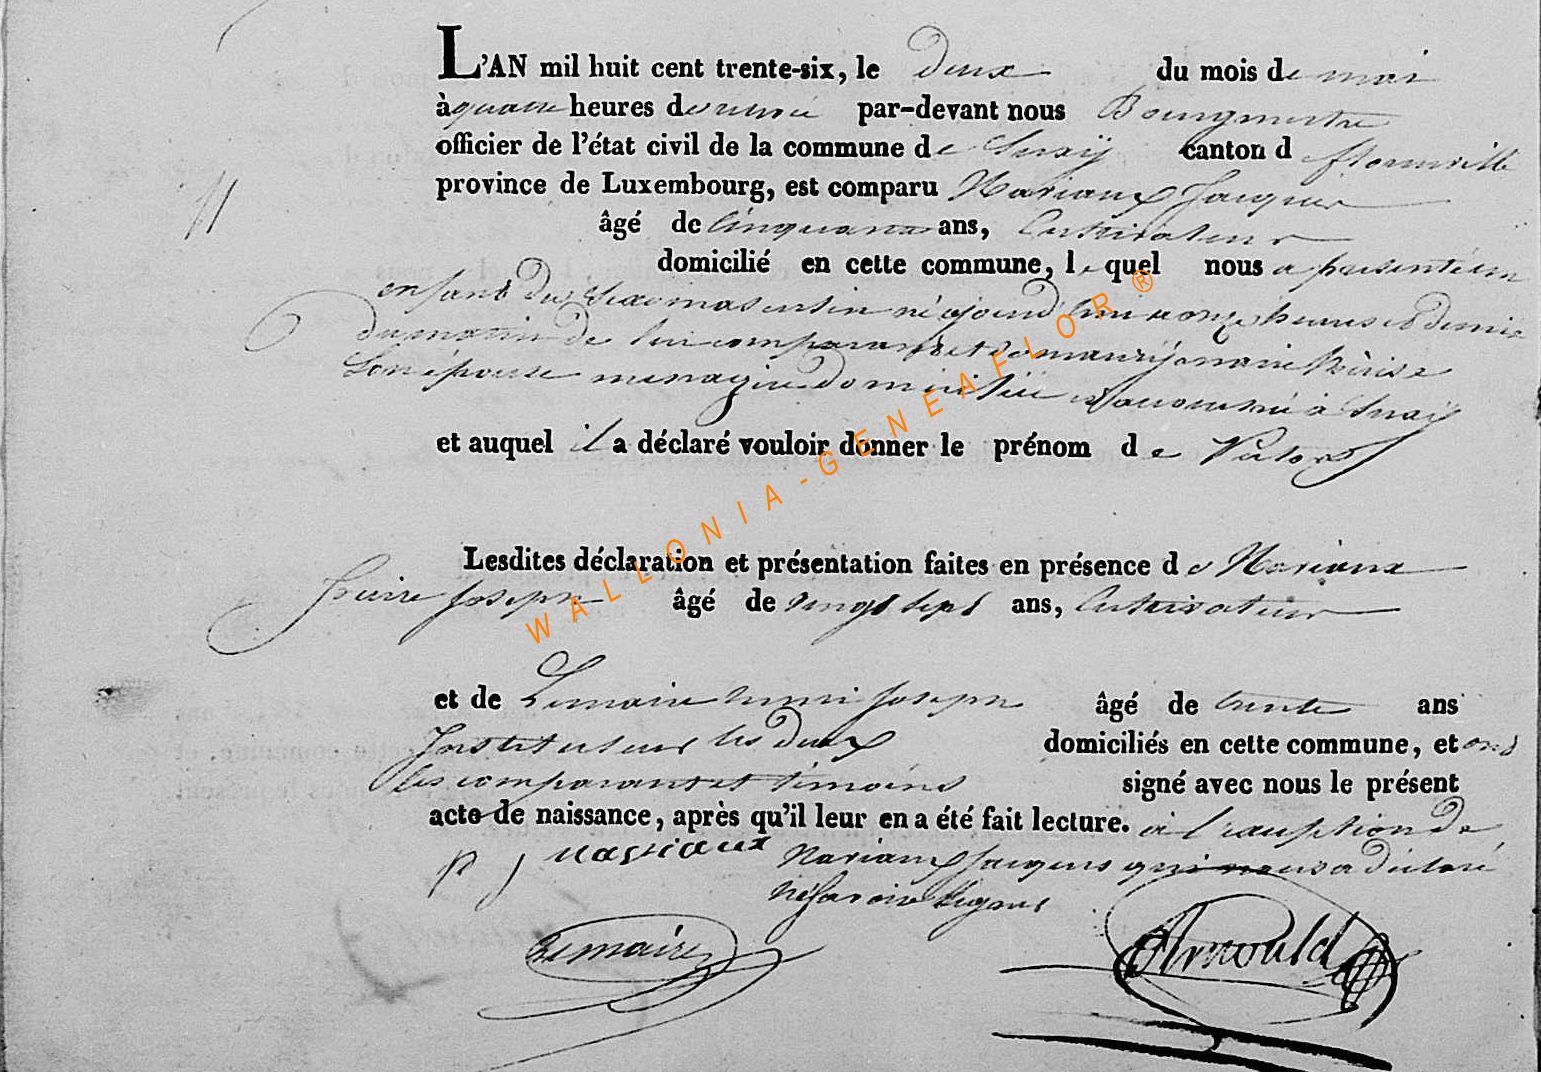 L'AN mil huit cent trente-six, le deux du mois de mai
à quatre heures de relevée par-devant nous Bourgmestre
officier de l'état civil de la commune de Suxÿ canton d florenville
province de Luxembourg, est comparu Mariaux Jacques
âgé de cinquante ans, Cultivateur
domicilié en cette commune, lequel nous a présenté un
enfant du sexe masculin né ajourd'hui à onze heures et demie
du matin de lui comparant et de marie Thérèse
Son épouse menagère domiciliée et accouchée à Suxÿ
et auquel il a déclaré vouloir donner le prénom de Victor
Lesdites déclaration et présentation faites en présence de Mariaux
pierre Joseph âgé de vingt sept ans, Cultivateur
et de Lemaire henri Joseph âgé de trente ans
Instituteur les deux domiciliés en cette commune, et ont
les comparant et témoins signé avec nous le présent
acte de naissance, après qu'il leur en a été fait lecture. à l'exception de
p j mariaux Mariaux Jacques qui nous a déclaré
ne savoir signer
Lemaire Arnould
WALLONIA-GENEAFLOR®